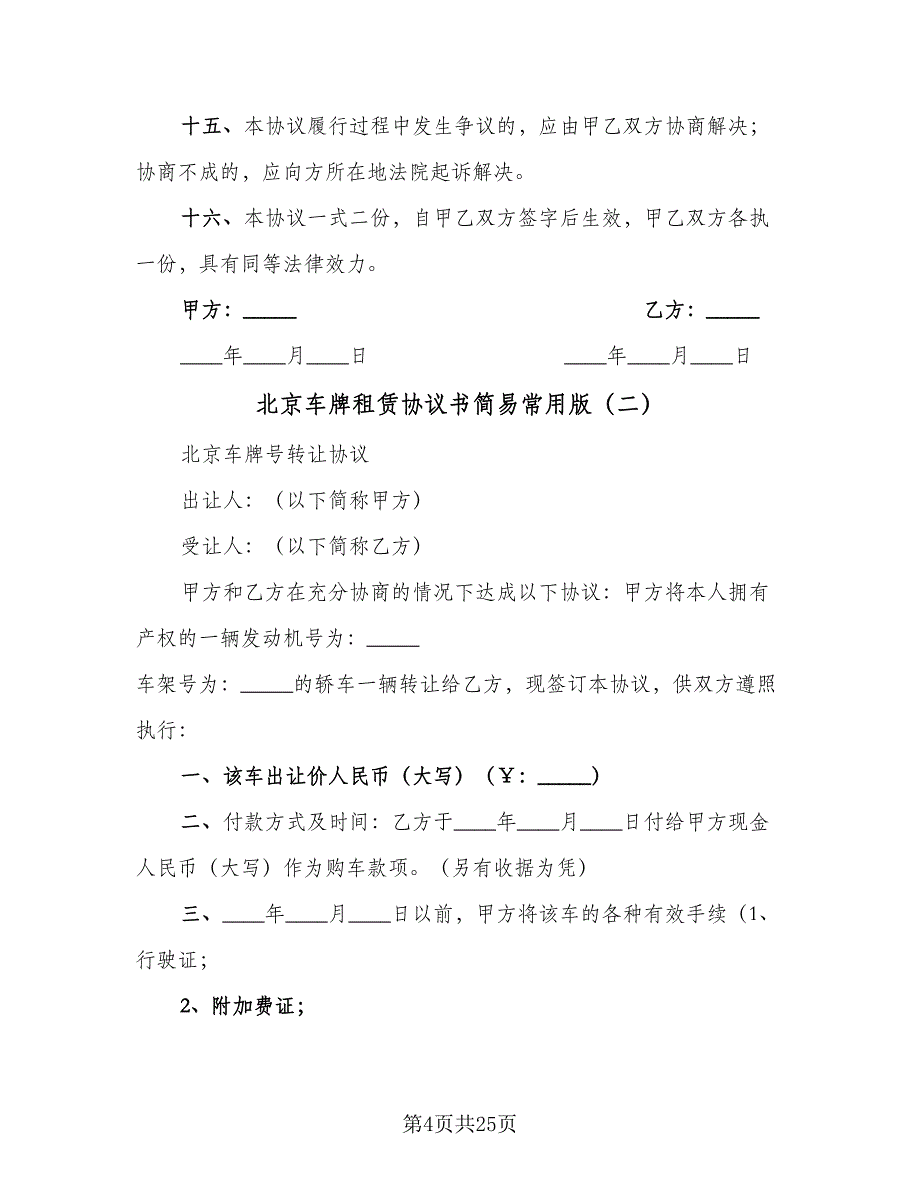 十五、本协议履行过程中发生争议的，应由甲乙双方协商解决；
协商不成的，应向方所在地法院起诉解决。
十六、本协议一式二份，自甲乙双方签字后生效，甲乙双方各执
一份，具有同等法律效力。
甲方：_____ 乙方：_____
____年____月____日 ____年____月____日
北京车牌租赁协议书简易常用版（二）
北京车牌号转让协议
出让人：（以下简称甲方）
受让人：（以下简称乙方）
甲方和乙方在充分协商的情况下达成以下协议：甲方将本人拥有
产权的一辆发动机号为：_____
车架号为：_____的轿车一辆转让给乙方，现签订本协议，供双方遵照
执行：
一、该车出让价人民币（大写）（￥：_____）
二、付款方式及时间：乙方于____年____月____日付给甲方现金
人民币（大写）作为购车款项。（另有收据为凭）
三、____年____月____日以前，甲方将该车的各种有效手续（1、
行驶证；
2、附加费证；
第4页共25页